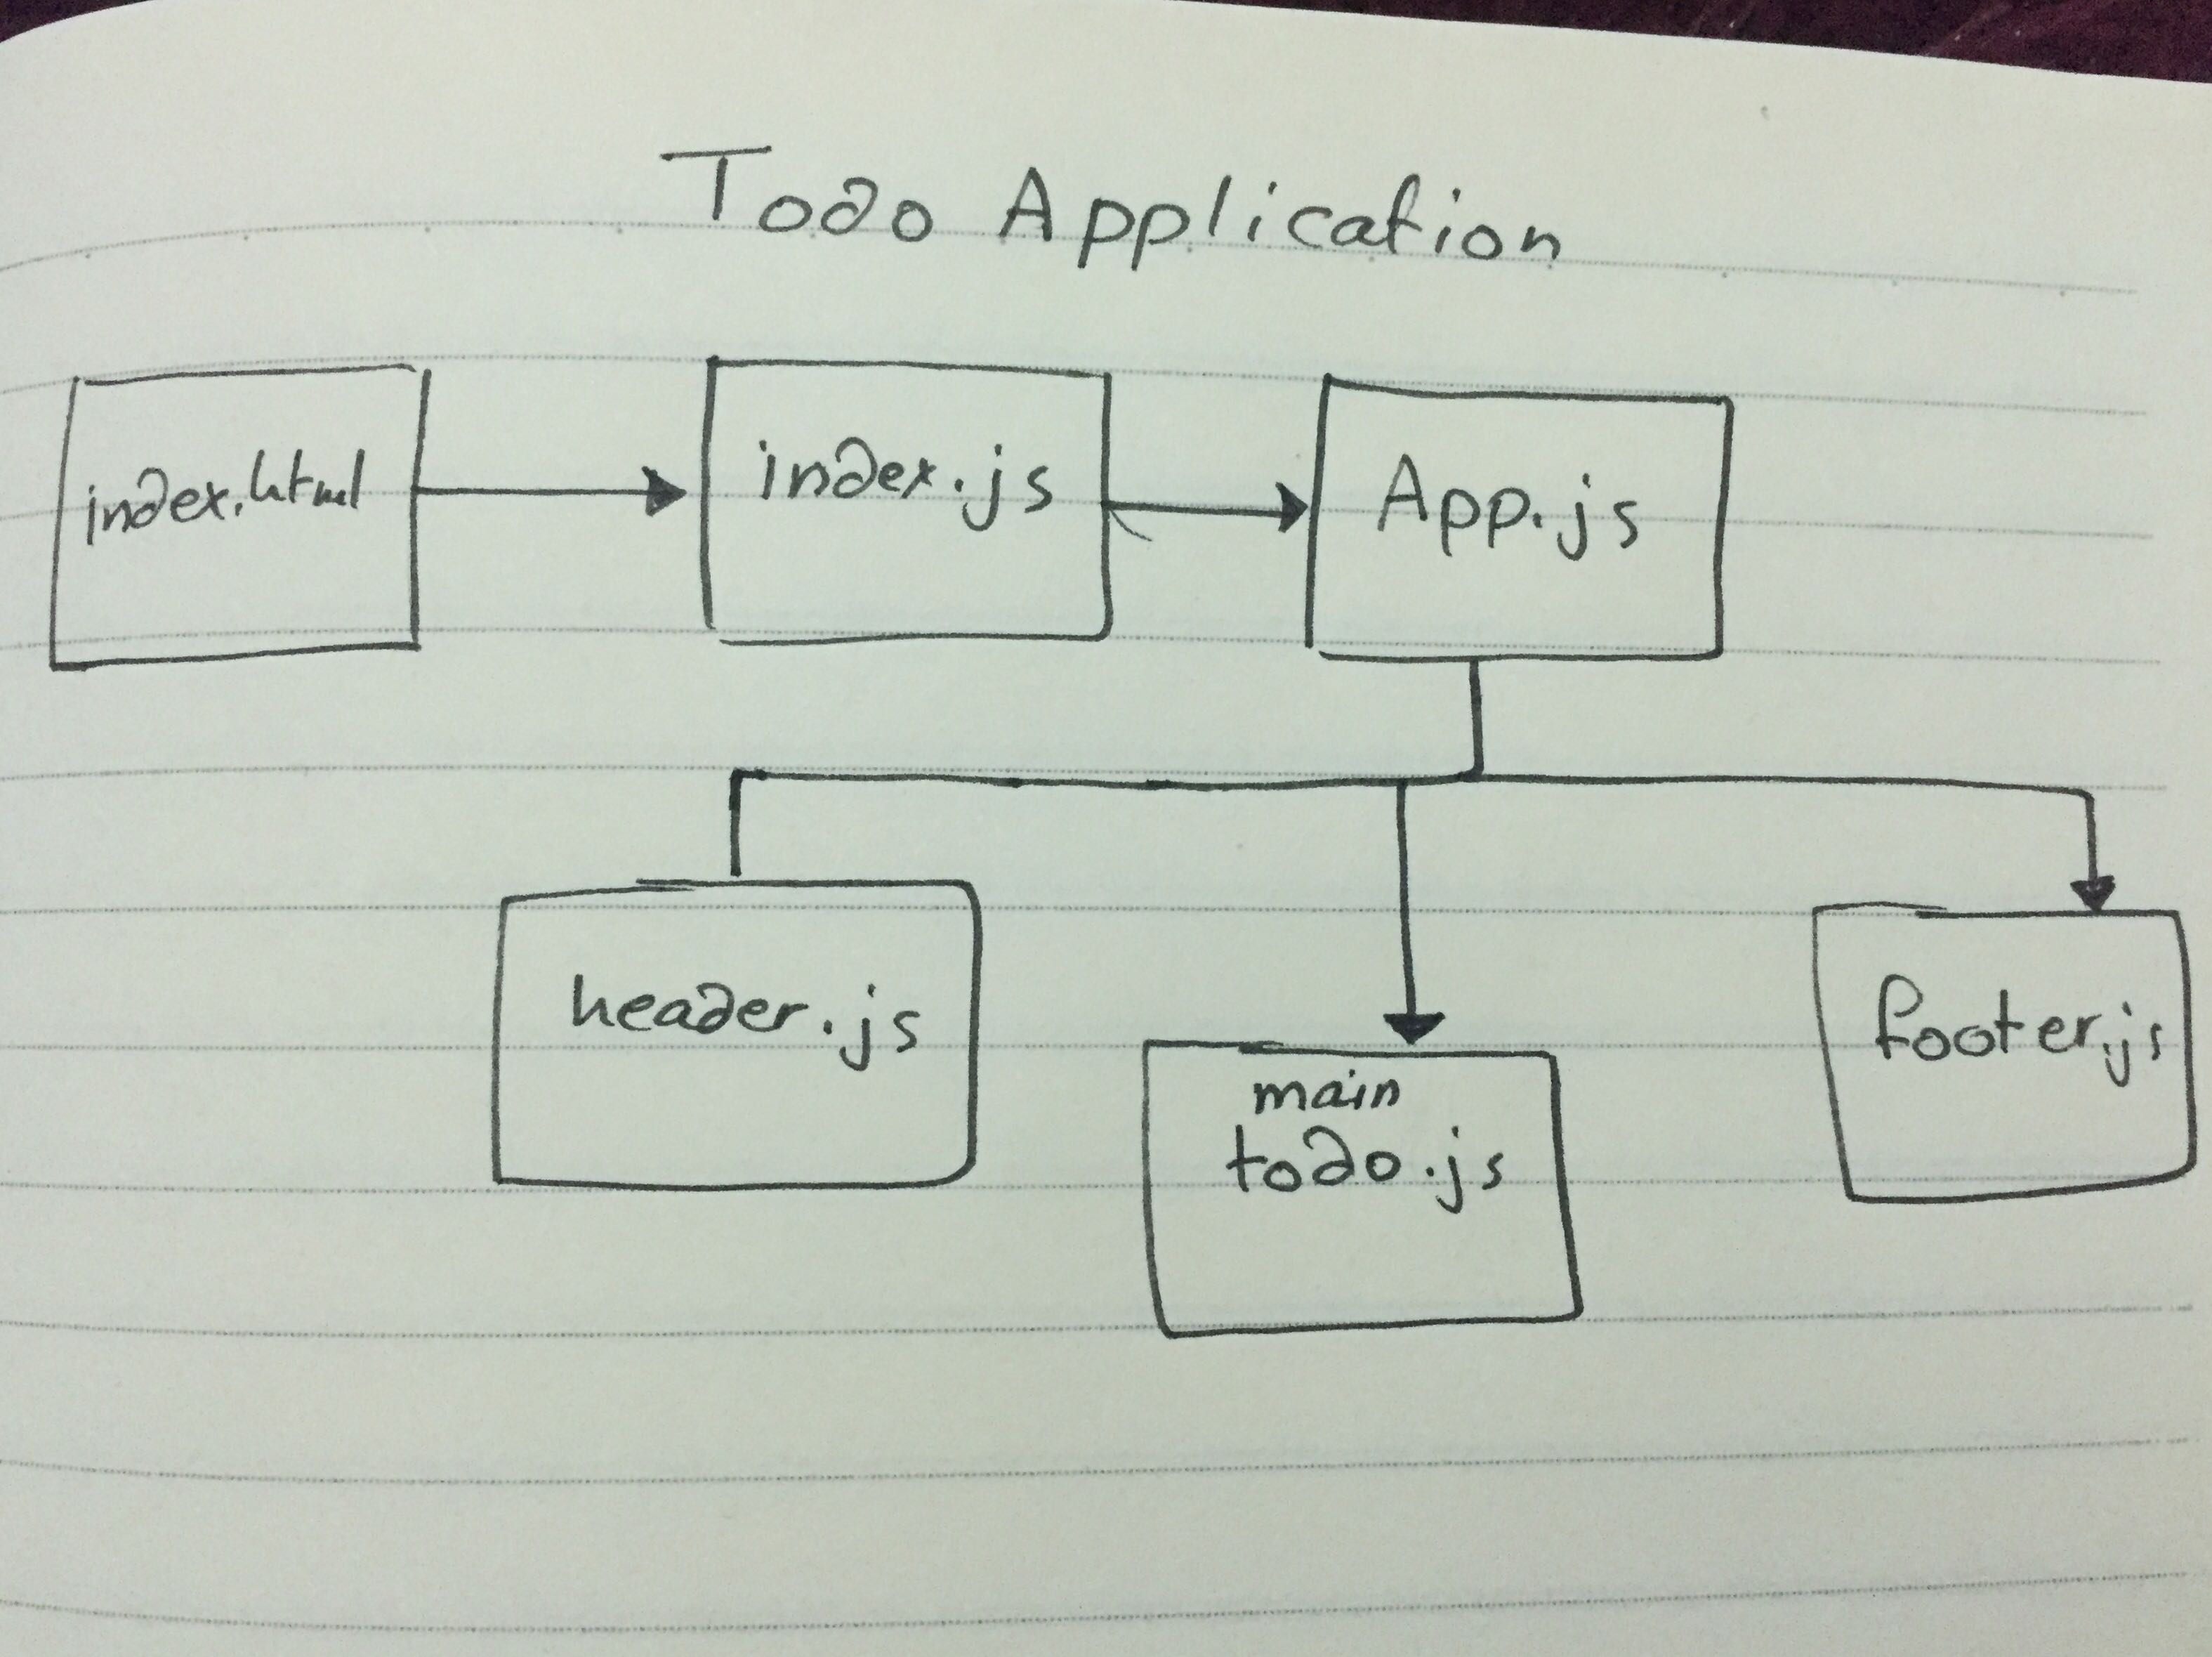 Todo Application
index.html
index.js
App.js
header.js
main
todo.js
footer.js